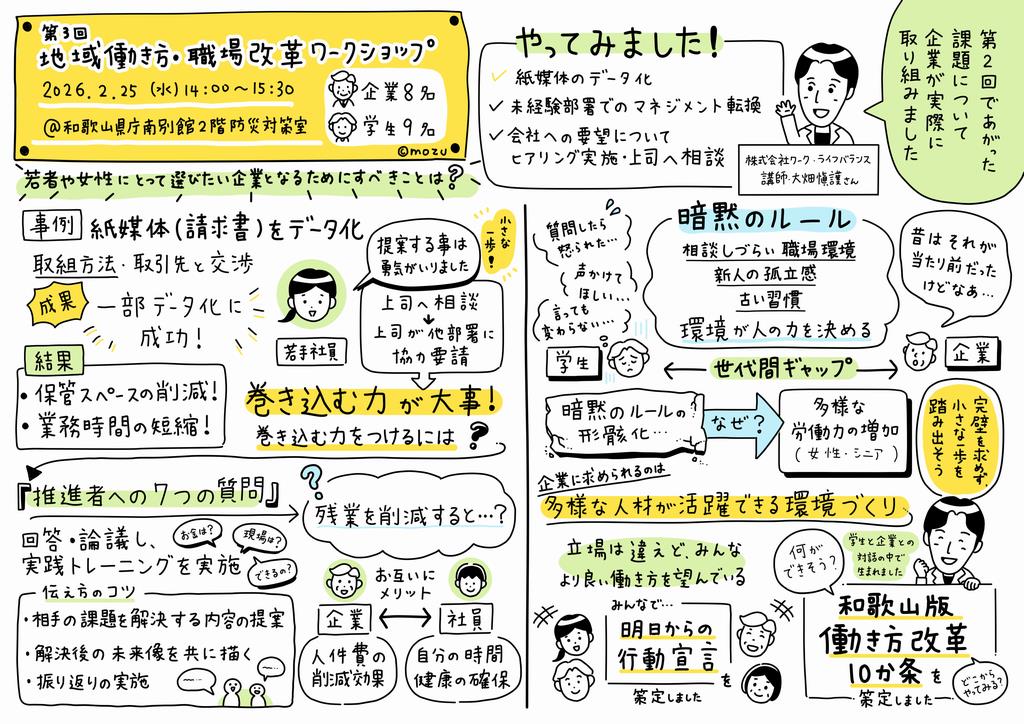 第3回
地域働き方・職場改革ワークショップ
2026.2.25(水)14:00〜15:30
@和歌山県庁南別館2階防災対策室
企業8名
学生9名
©mozu
若者や女性にとって選びたい企業となるためにすべきことは?
やってみました!
紙媒体のデータ化
未経験部署でのマネジメント転換
会社への要望について
ヒアリング実施・上司へ相談
株式会社ワーク・ライフバランス
講師・大畑愼護さん
第2回であがった
課題について
企業が実際に
取り組みました
事例
紙媒体(請求書)をデータ化
取組方法・取引先と交渉
成果
一部データ化に
成功!
結果
・保管スペースの削減!
・業務時間の短縮!
若手社員
提案する事は
勇気がいりました
小さな
一歩!
上司へ相談
上司が他部署に
協力要請
巻き込む力が大事!
巻き込む力をつけるには?
『推進者への7つの質問』
回答・論議し、
実践トレーニングを実施
お金は?
現場は?
できるの?
伝え方のコツ
・相手の課題を解決する内容の提案
・解決後の未来像を共に描く
・振り返りの実施
?
残業を削減すると…?
お互いに
メリット
企業
社員
人件費の
削減効果
自分の時間
健康の確保
質問したら
怒られた…
声かけて
ほしい…
言っても
変わらない…
学生
暗黙のルール
相談しづらい職場環境
新人の孤立感
古い習慣
環境が人の力を決める
昔はそれが
当たり前だった
けどなあ…
企業
世代間ギャップ
暗黙のルールの
形骸化…
なぜ?
多様な
労働力の増加
(女性・シニア)
完璧を求めず、
小さな一歩を
踏み出そう
企業に求められるのは
多様な人材が活躍できる環境づくり
立場は違えど、みんな
より良い働き方を望んでいる
みんなで…
明日からの
行動宣言を
策定しました
何が
できそう?
学生と企業との
対話の中で
生まれました
和歌山版
働き方改革
10か条を
策定しました
どこから
やってみる?